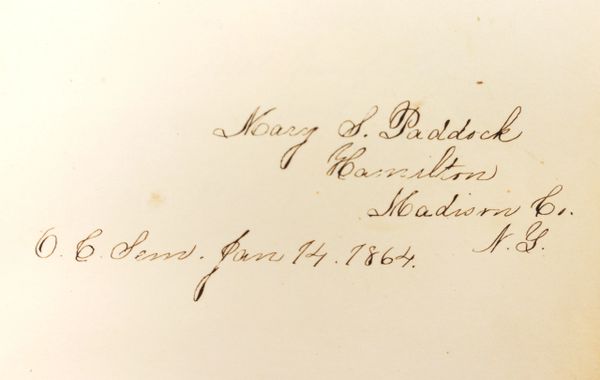 Mary S. Paddock
Hamilton
Madison Co.
N. Y.
O. C. Sem. Jan 14. 1864.